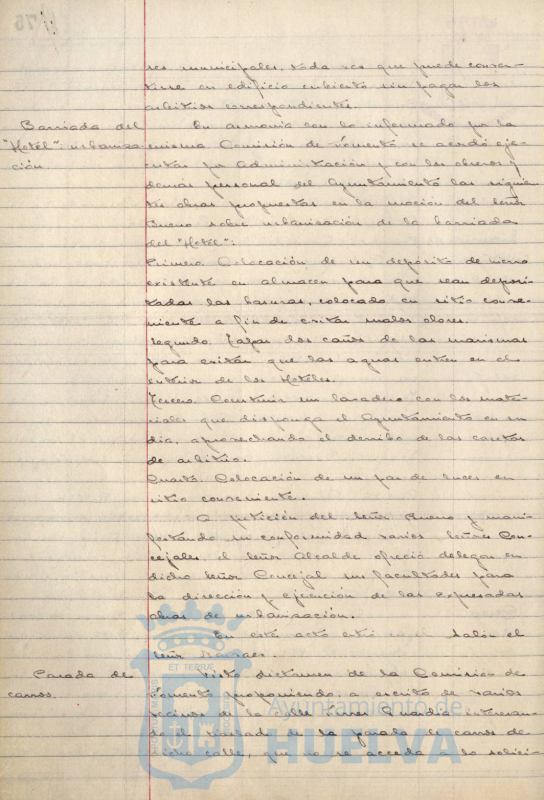 res municipales, toda vez que puede conver-
tirse en edificio cubierto sin pagar los
arbitrios correspondientes.
Barriada del
"Hotel" urbaniza-
ción.
En armonía con lo informado por la
misma Comisión de Fomento se acordó eje-
cutar por Administración y con los obreros y
demás personal del Ayuntamiento las siguien-
tes obras propuestas en la moción del Señor
Bueno sobre urbanización de la barriada
del "Hotel":
Primero. Colocación de un depósito de hierro
existente en almacen para que sean deposi-
tadas las basuras, colocado en sitio conve-
niente a fin de evitar malos olores.
Segundo. Tapar los caños de las marismas
para evitar que las aguas entren en el
interior de los Hoteles.
Tercero. Construir un lavadero con los mate-
riales que disponga el Ayuntamiento en su
dia, aprovechando el derribo de las casetas
de arbitrio.
Cuarto. Colocación de un par de luces en
sitio conveniente.
A petición del Señor Bueno y mani-
festando su conformidad varios Señores Con-
cejales, el Señor Alcalde ofreció delegar en
dicho Señor Concejal sus facultades para
la dirección y ejecución de las expresadas
obras de urbanización.
En este acto en el Salón el
Señor
Parada de
carros.
Visto dictamen de la Comisión de
Fomento proponiendo, a escrito de varios
vecinos de la calle interesan-
do el traslado de la parada de carros de
dicha calle, que no se acceda a lo solici-
Ayuntamiento de
HUELVA